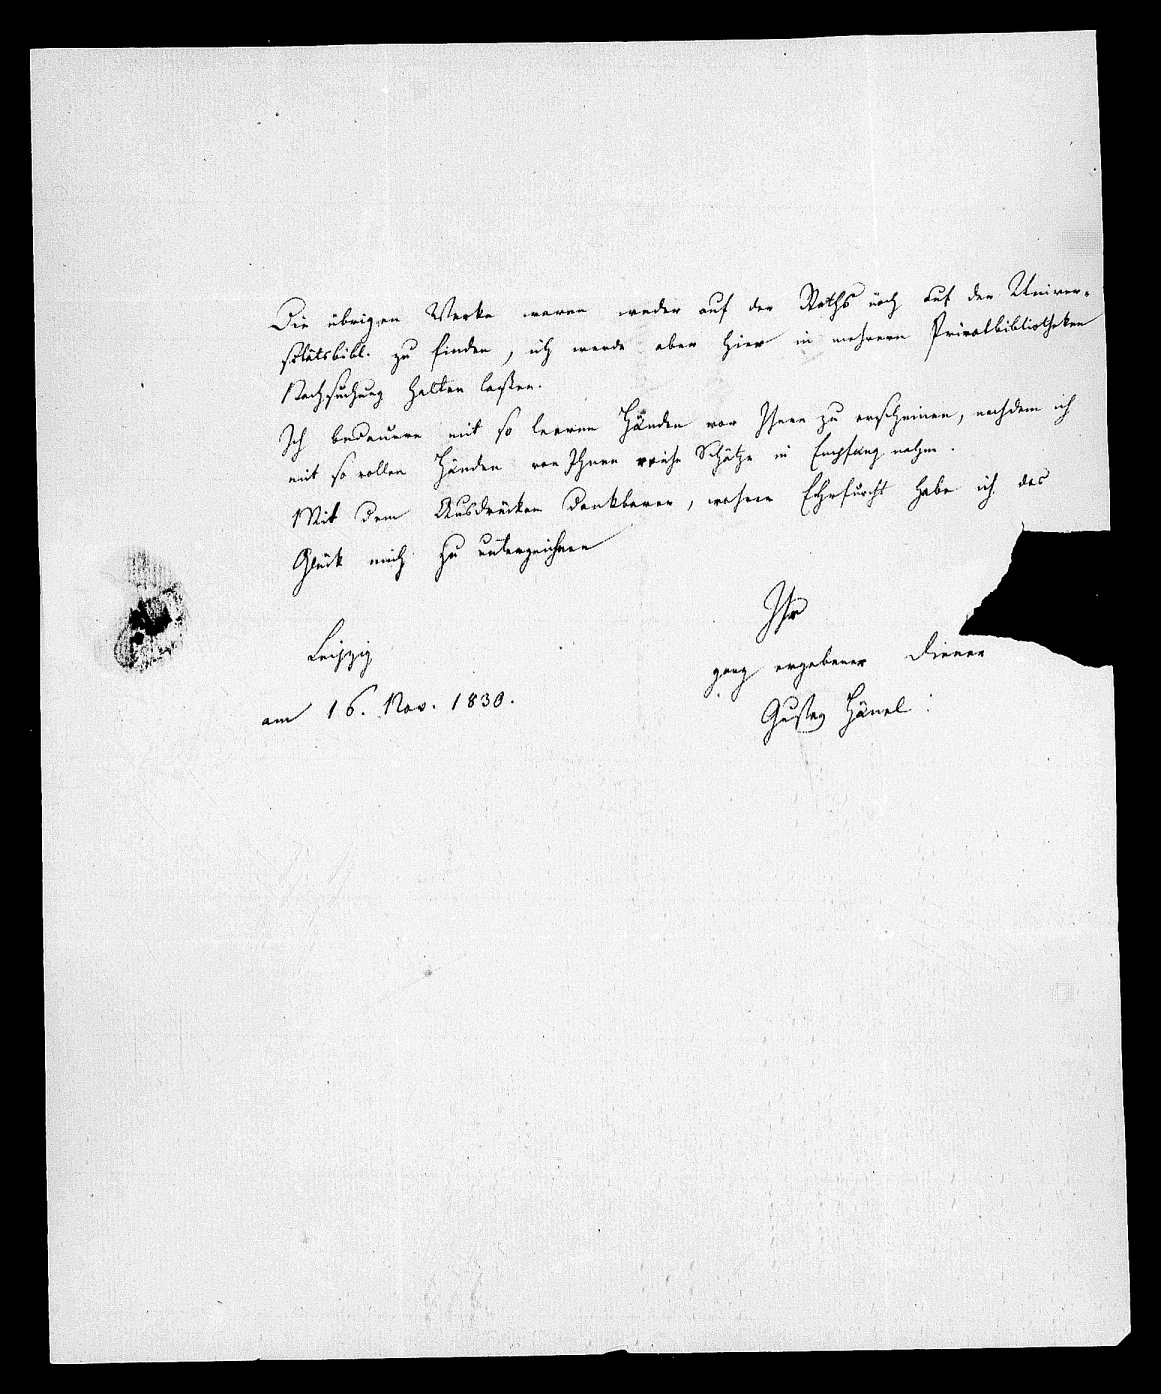 Die übrigen Werke waren weder auf der Raths noch auf der Univer-
sitätsbibl. zu finden, ich werde aber hier in mehrern Privatbibliotheken
Nachsuchung halten laßen.
Ich bedauere mit so leeren Händen vor Ihnen zu erscheinen, nachdem ich
mit so vollen Händen von Ihnen reiche Schätze in Empfang nahm.
Mit dem Ausdrucken dankbarer, wahrer Ehrfurcht habe ich das
Glück mich zu unterzeichnen
Ihr
Leipzig
ganz ergebener Diener
am 16. Nov. 1830.
Gustav Hänel.